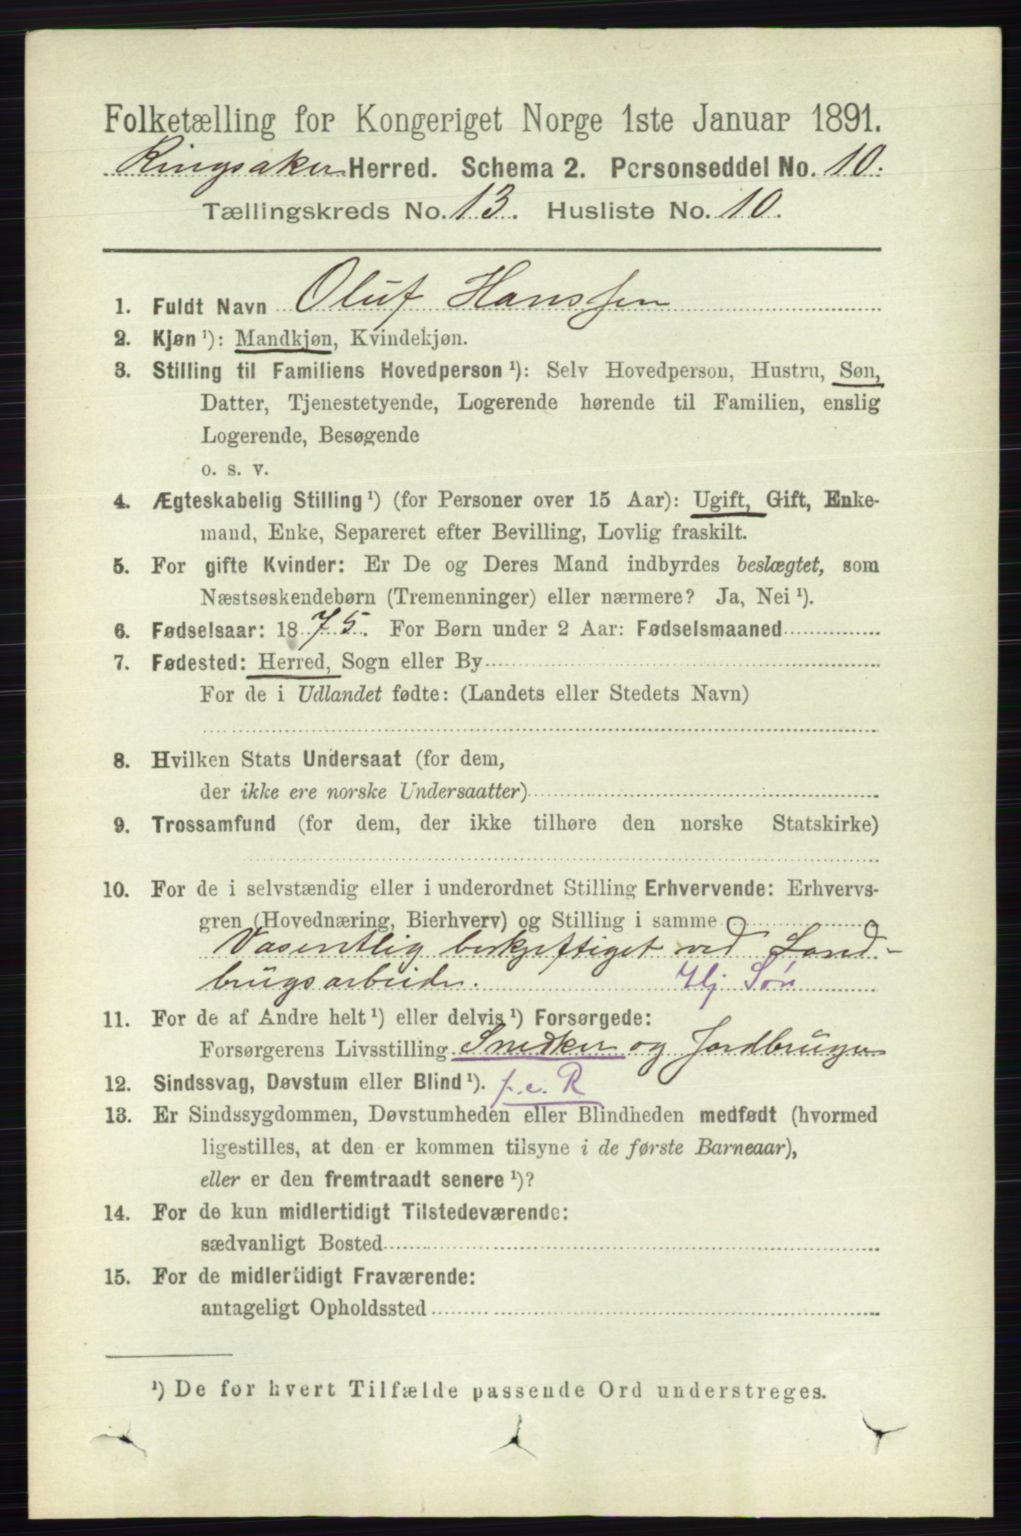 Folketælling for Kongeriget Norge 1ste Januar 1891.
Ringsaker Herred. Schema 2. Personseddel No. 10.
Tællingskreds No. 13. Husliste No. 10.
1. Fuldt Navn Oluf Hanssen
2. Kjøn ¹): Mandkjøn, Kvindekjøn.
3. Stilling til Familiens Hovedperson ¹): Selv Hovedperson, Hustru, Søn,
Datter, Tjenestetyende, Logerende hørende til Familien, enslig
Logerende, Besøgende
o. s. v.
4. Ægteskabelig Stilling ¹) (for Personer over 15 Aar): Ugift, Gift, Enke-
mand, Enke, Separeret efter Bevilling, Lovlig fraskilt.
5. For gifte Kvinder: Er De og Deres Mand indbyrdes beslægtet, som
Næstsøskendebørn (Tremenninger) eller nærmere? Ja, Nei ¹).
6. Fødselsaar: 1875. For Børn under 2 Aar: Fødselsmaaned
7. Fødested: Herred, Sogn eller By
For de i Udlandet fødte: (Landets eller Stedets Navn)
8. Hvilken Stats Undersaat (for dem,
der ikke ere norske Undersaatter)
9. Trossamfund (for dem, der ikke tilhøre den norske Statskirke)
10. For de i selvstændig eller i underordnet Stilling Erhvervende: Erhvervs-
gren (Hovednæring, Bierhverv) og Stilling i samme
Vasentlig beskjæftiget ved Land-
brugsarbeide. Hj Søn
11. For de af Andre helt ¹) eller delvis ¹) Forsørgede:
Forsørgerens Livsstilling Snedker og Jordbruger
12. Sindssvag, Døvstum eller Blind ¹). f. e. R
13. Er Sindssygdommen, Døvstumheden eller Blindheden medfødt (hvormed
ligestilles, at den er kommen tilsyne i de første Barneaar),
eller er den fremtraadt senere ¹)?
14. For de kun midlertidigt Tilstedeværende:
sædvanligt Bosted
15. For de midlertidigt Fraværende:
antageligt Opholdssted
¹) De for hvert Tilfælde passende Ord understreges.